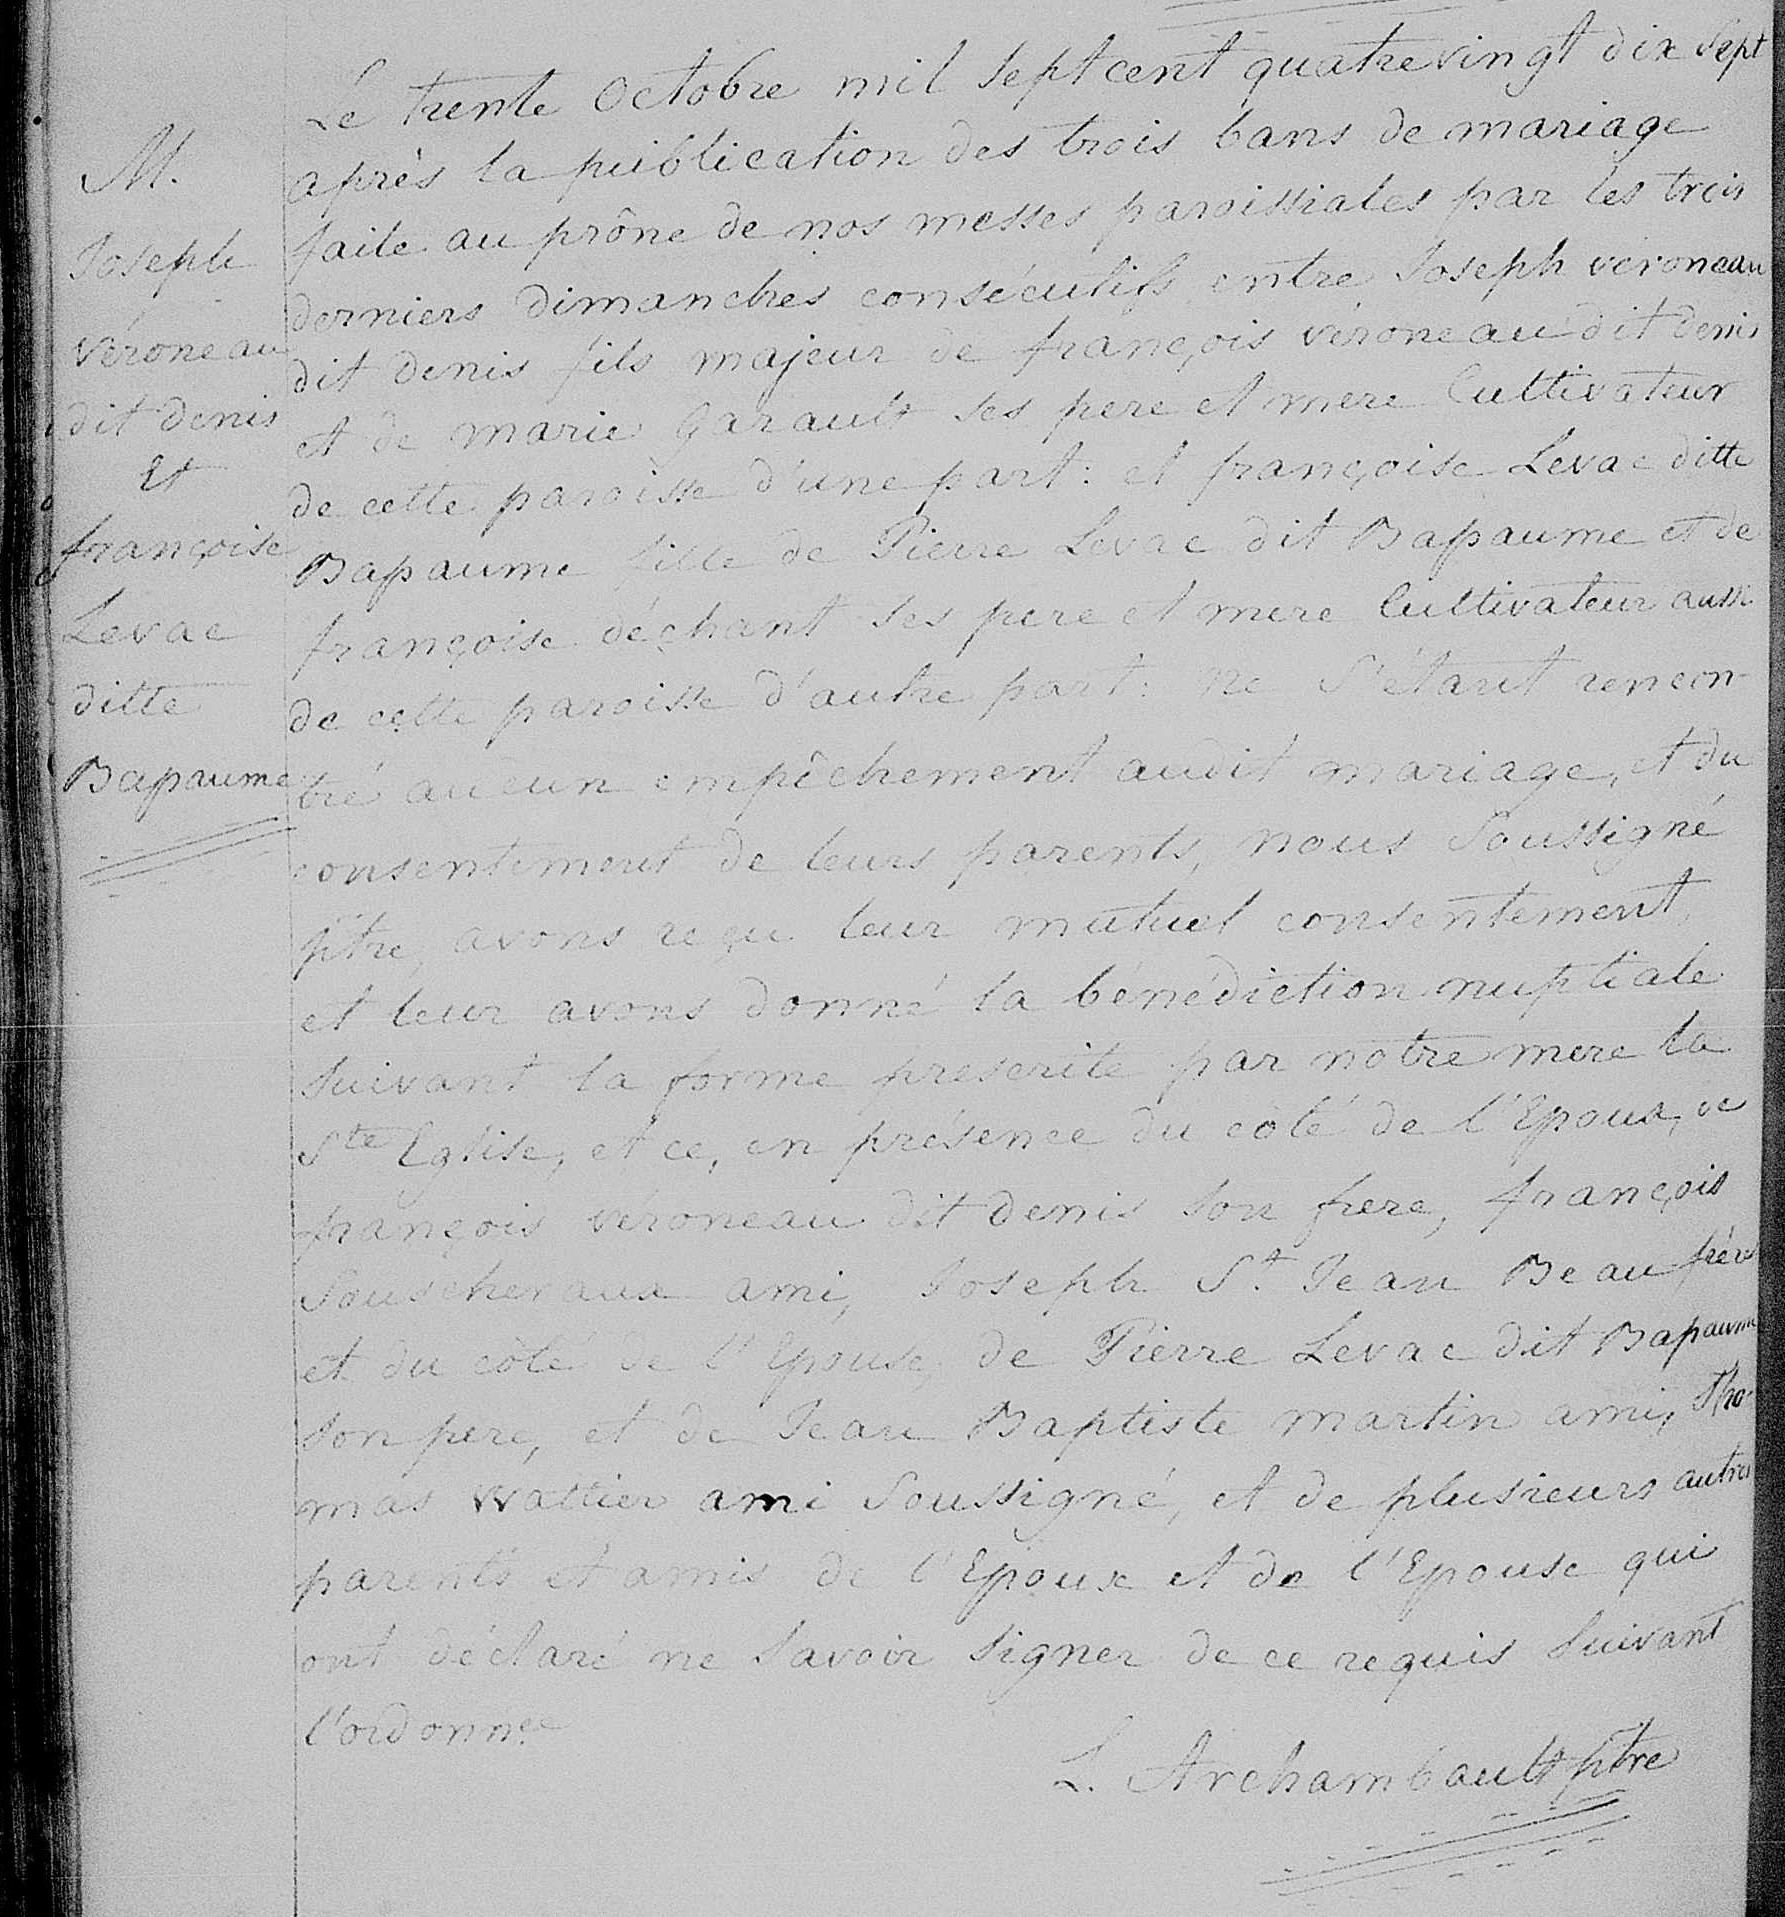 M.
Joseph
véroneau
dit denis
Et
françoise
Levac
ditte
Bapaume
Le trente Octobre mil Sept cent quatrevingt dix Sept
après la publication des trois bans de mariage
faite au prône de nos messes paroissiales par les trois
derniers dimanches consécutifs entre Joseph véroneau
dit denis fils majeur de françois véroneau dit denis
et de marie garault ses pere et mere Cultivateur
de cette paroisse d'une part: et françoise Levac ditte
Bapaume fille de Pierre Levac dit Bapaume et de
françoise déchant ses pere et mere Cultivateur aussi
de cette paroisse d'autre part: ne S'étant rencon-
tré aucun empêchement audit mariage, et du
consentement de leurs parents, nous Soussigné
ptre, avons reçu leur mutuel consentement,
et leur avons donné la bénédiction nuptiale
Suivant la forme prescrite par notre mere la
Ste Eglise, et ce, en présence du côté de l'Epoux, de
françois véroneau dit denis Son frere, françois
Souscheraux ami, Joseph St. Jean Beau frére
et du côté de l'Epouse, de Pierre Levac dit Bapaume
Son pere, et de Jean Baptiste martin ami, Tho-
mas Wattier ami Soussigné, et de plusieurs autres
parents et amis de l'Epoux et de l'Epouse qui
ont déclaré ne Savoir Signer de ce requis Suivant
l'ordonnce
L. Archambault ptre